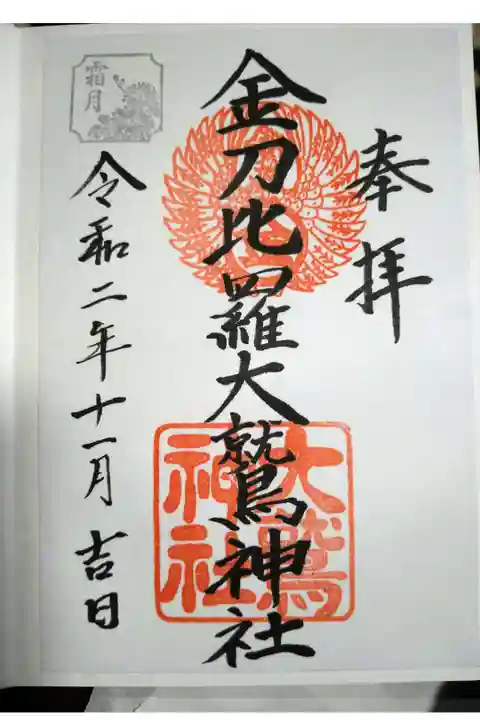 奉拝
金刀比羅大鷲神社
大鷲
神社
霜月
令和二年十一月吉日